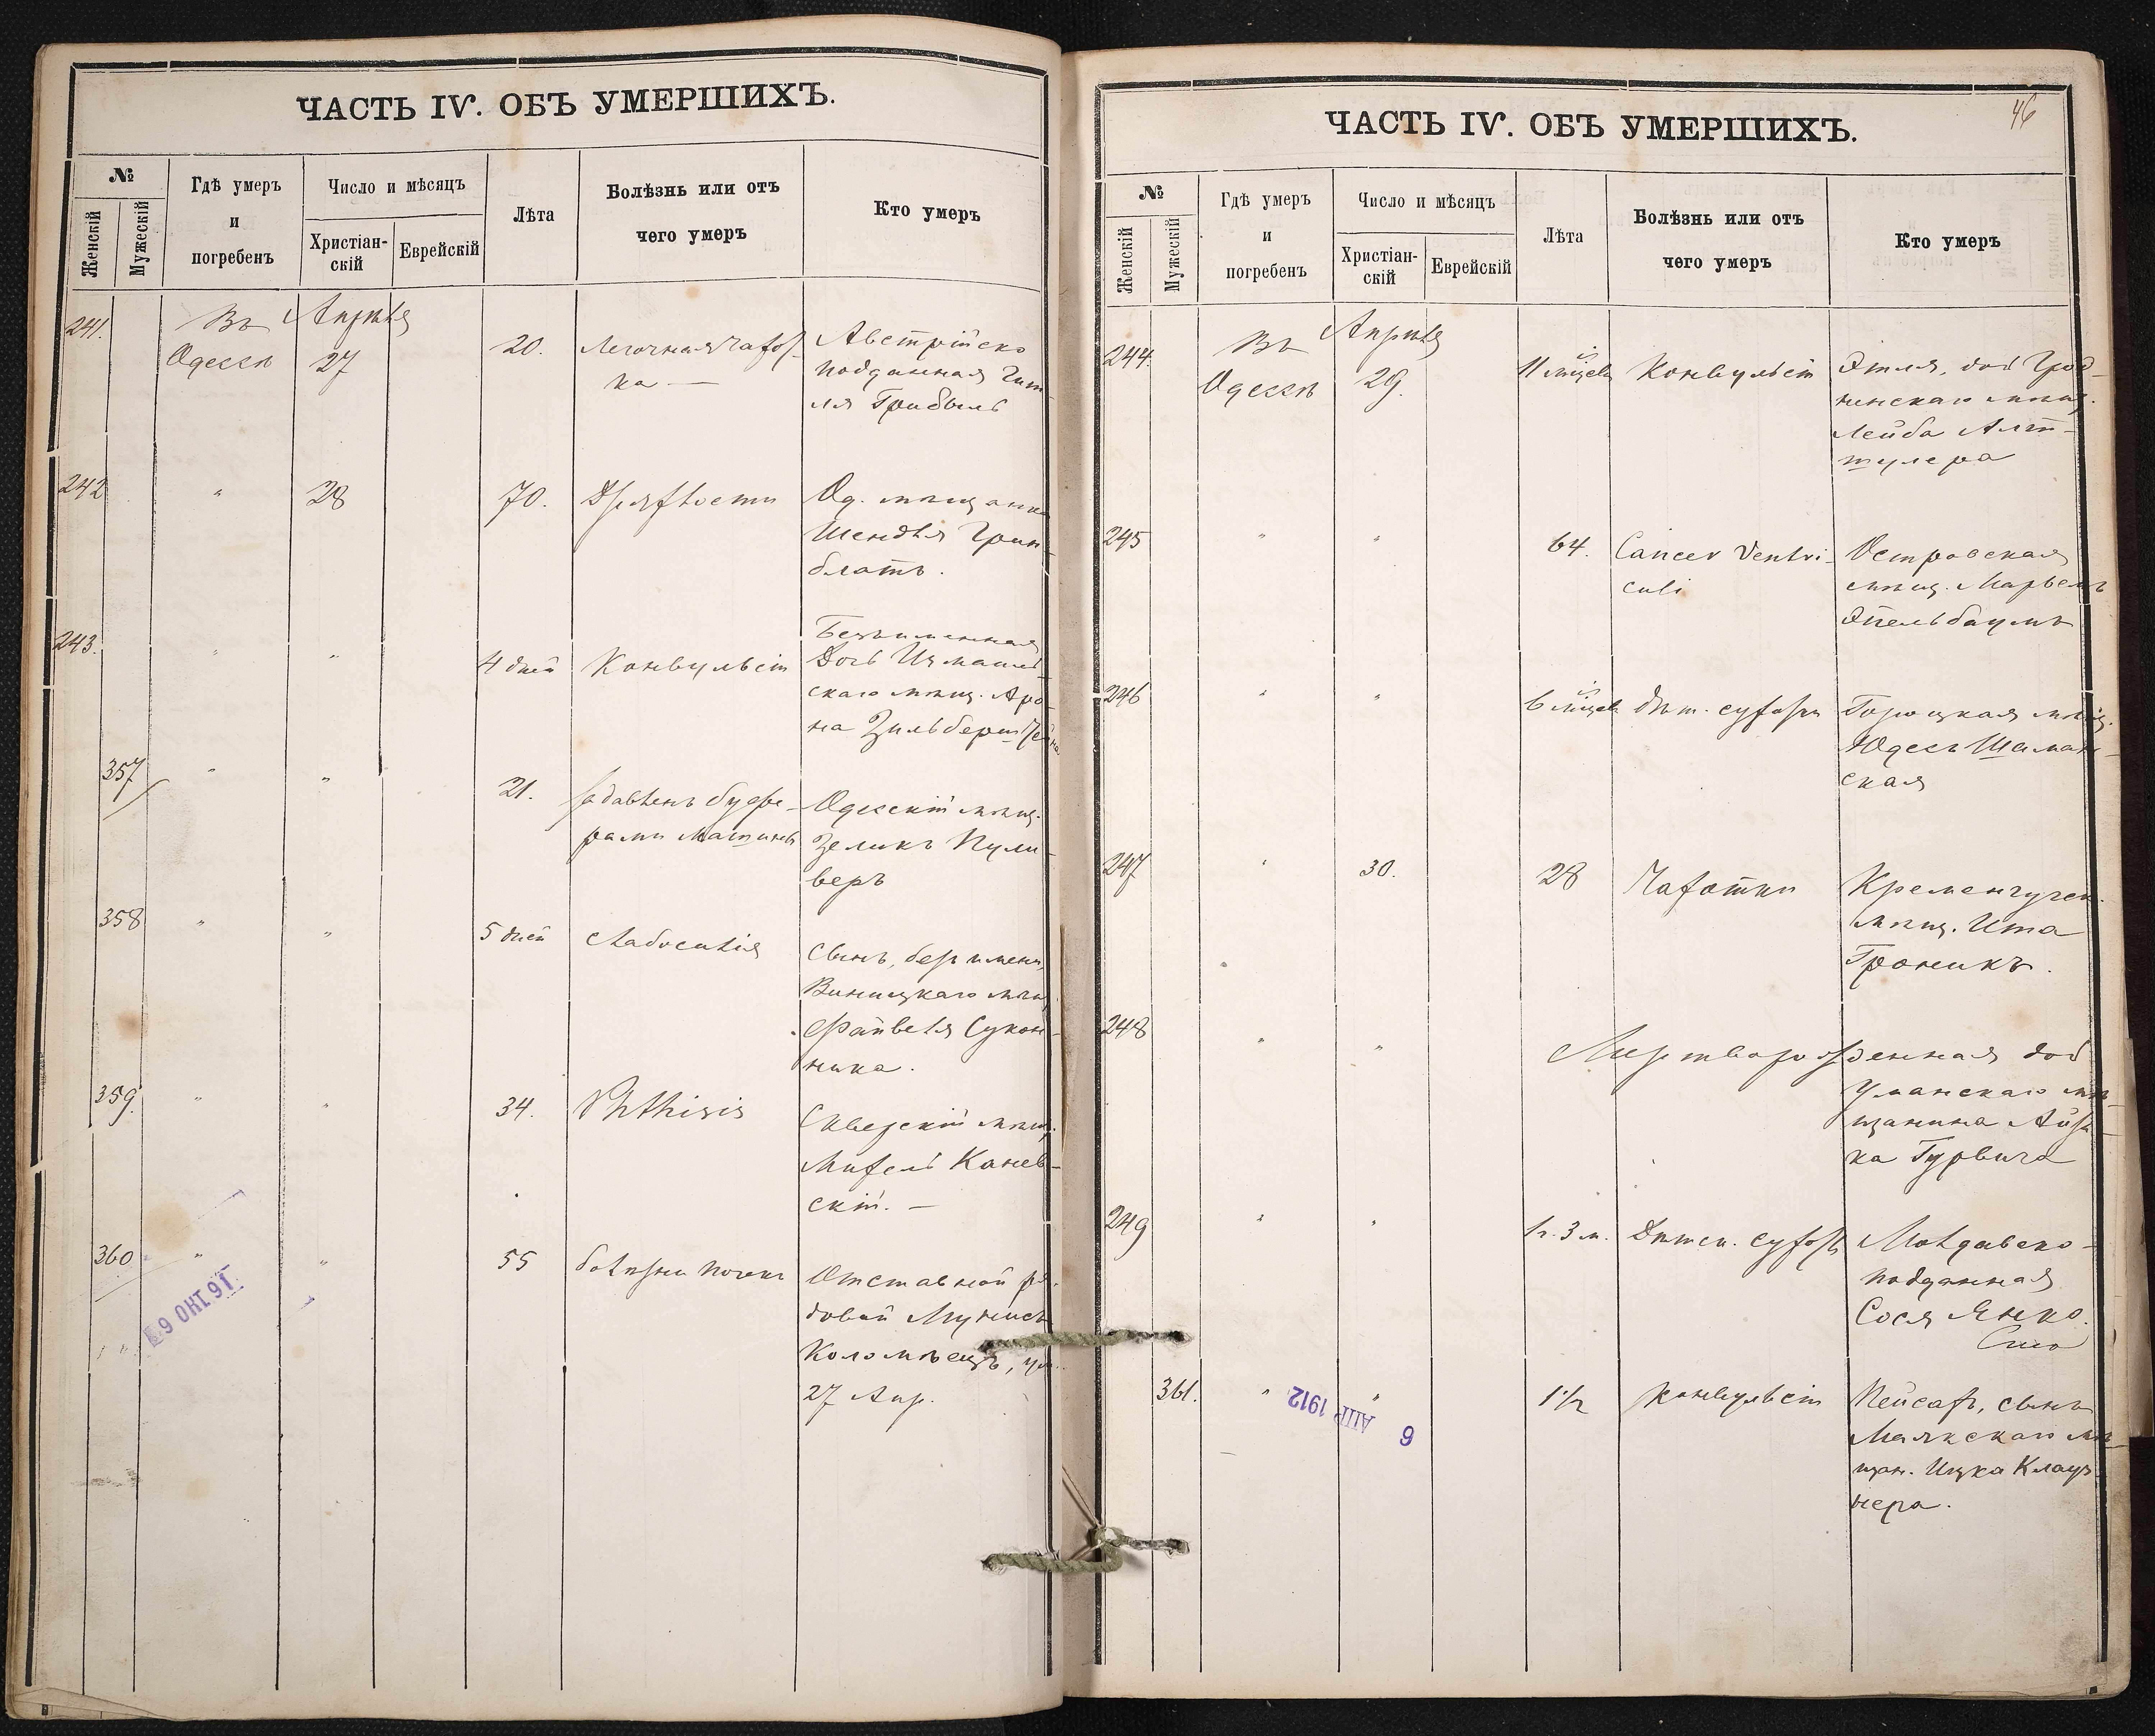 ЧАСТЬ IV. ОБЪ УМЕРШИХЪ.
№
Женскій
Мужескій
Гдѣ умеръ
и
погребенъ
Число и мѣсяцъ
Христіан-
скій
Еврейскій
Лѣта
Болѣзнь или отъ
чего умеръ
Кто умеръ
241.
Въ Апрѣля
Одессѣ 27
20.
Легочная чахот-
ка —
Австрійско
подданная Гит-
ля Грибыль
242
" 28
70.
Дряхлости
Од. мѣщанка
Шендля Грин-
блатъ.
243.
" "
4 дней
Конвульсіи
Безъименная
дочь Измаиль-
скаго мѣщ. Аро-
на Зильберштейна
357
" "
21.
задавленъ буфе-
рами машины
Одесскій мѣщ.
Зеликъ Пули-
веръ
358
" "
5 дней
слабосилія
Сынъ, безъ имени,
Виницкаго мѣщ.
Файвеля Сукон-
ника.
359.
" "
34.
Phthisis
Сквирскій мѣщ.
Михель Канев-
скій. —
360
" "
55
болѣзни почекъ
Отставной ря-
довой Мунись
Коломѣецъ, ум.
27 Апр.
9 ОКТ 91
ЧАСТЬ IV. ОБЪ УМЕРШИХЪ.
46
№
Женскій
Мужескій
Гдѣ умеръ
и
погребенъ
Число и мѣсяцъ
Христіан-
скій
Еврейскій
Лѣта
Болѣзнь или отъ
чего умеръ
Кто умеръ
244.
Въ Апрѣля
Одессѣ 29.
11 мѣсцевъ
Конвульсіи
Этля, дочь Грод-
ненскаго мѣщ.
Лейба Альт-
шулера
245
" "
64.
Cancer Ventri-
culi
Островская
мѣщ. Марьемъ
Эпельбаумъ
246
" "
6 мѣсцевъ
дѣт. сухотки
Горецкая мѣщ.
Юдесъ Шиман-
ская
247
" 30.
28
Чахотки
Кременчугск.
мѣщ. Ита
Троникъ.
248
" "
Мертворожденная дочь
Уманскаго мѣ-
щанина Айзи-
ка Гурвича
249
" "
1 г. 3 м.
Дѣтск. сухоты
Молдавско-
подданная
Сося Янко.
361.
" "
1 1/2
Конвульсіи
Пейсахъ, сынъ
Маякскаго мѣ-
щан. Ицка Клауз-
нера.
6 АПР 1912